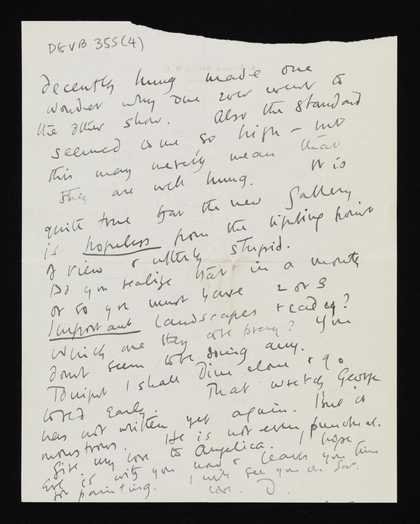 DEVB 355(4)
decently hung made one
wonder why one ever went to
the other show. Also the standard
seemed to me so high – but
this may merely mean that
they are well hung. It is
quite true that the new Gallery
is hopeless from the lighting point
of view & utterly stupid.
Do you realise that in a month
or so you must have 2 or 3
important landscapes ready?
Which are they
dont seem to be doing any. You
Tonight I shall dine alone & go
to bed early. That wretch George
has not written yet again. But is
monstrous. He is not even punctual.
Give my love to Angelica. I hope
is with you now & leaves you time
for painting. I will see you on Sat.